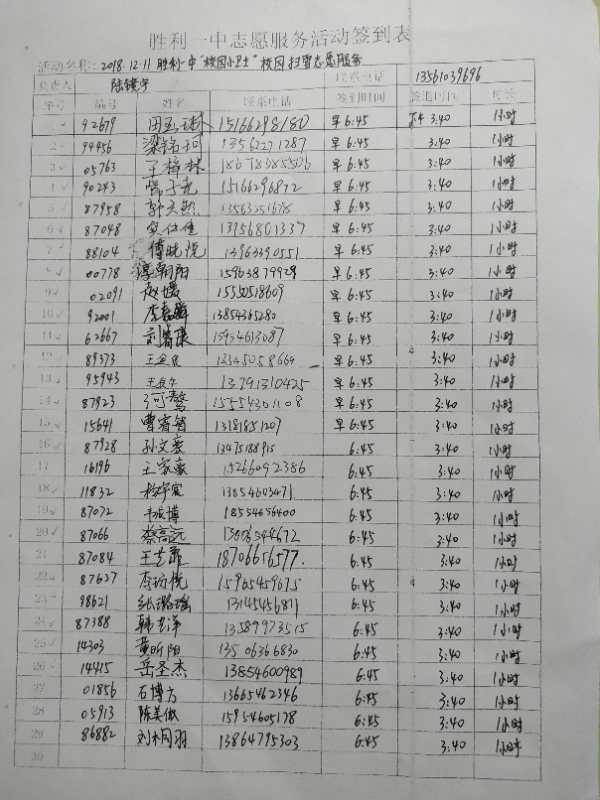 胜利一中志愿服务活动签到表
活动名称: 2018.12.11 胜利一中"校园小卫士"校园扫雪志愿服务
负责人 陆镜宇 联系电话 13561039696
序号 编号 姓名 联系电话 签到时间 签退时间 时长
1 92679 15166298180 早6:45 下午3:40 1小时
2 99456 13562271287 早6:45 3:40 1小时
3 05763 早6:45 3:40 1小时
4 90243 15166296872 早6:45 3:40 1小时
5 87958 早6:45 3:40 1小时
6 87048 13956801337 早6:45 3:40 1小时
7 88104 傅晓悦 13963390551 早6:45 3:40 1小时
8 00778 朝阳 15963879929 早6:45 3:40 1小时
9 02091 赵媛 15550518609 早6:45 3:40 1小时
10 92001 李嘉 13854365280 早6:45 3:40 1小时
11 62667 刘 15954613087 早6:45 3:40 1小时
12 89373 王 早6:45 3:40 1小时
13 95943 王 13791310425 早6:45 3:40 1小时
14 87923 早6:45 3:40 1小时
15 15641 曹睿智 13181851207 早6:45 3:40 1小时
16 87928 孙文 13475188915 6:45 3:40 1小时
17 16196 王家豪 15266092386 6:45 3:40 1小时
18 11832 杨宇宸 13854603471 6:45 3:40 1小时
19 87072 博 18554656400 6:45 3:40 1小时
20 87066 蔡高远 6:45 3:40 1小时
21 87084 王艺霏 18706616577 6:45 3:40 1小时
22 87627 李 悦 15965459675 6:45 3:40 1小时
23 98621 张 瑶 13145456811 6:45 3:40 1小时
24 87388 韩 洋 13589973515 6:45 3:40 1小时
25 14303 黄昕阳 13506366830 6:45 3:40 1小时
26 14415 岳圣杰 13854600989 6:45 3:40 1小时
27 01856 石博方 13665462346 6:45 3:40 1小时
28 05913 陈美 15954605178 6:45 3:40 1小时
29 86882 刘 羽 13864795303 6:45 3:40 1小时
30